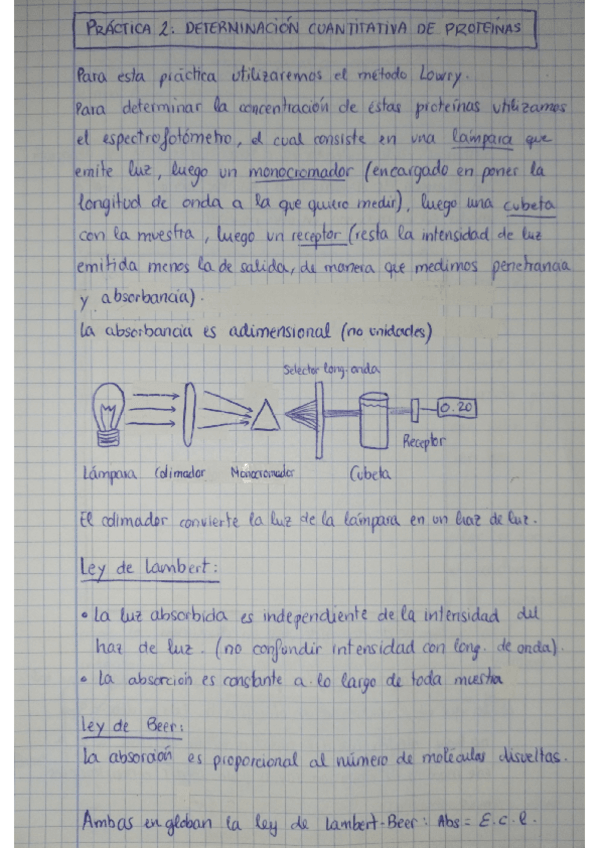 PRÁCTICA 2: DETERMINACIÓN CUANTITATIVA DE PROTEÍNAS
Para esta práctica utilizaremos el método Lowry.
Para determinar la concentración de estas proteínas utilizamos
el espectrofotómetro, el cual consiste en una lámpara que
emite luz, luego un monocromador (encargado en poner la
longitud de onda a la que quiero medir), luego una cubeta
con la muestra, luego un receptor (resta la intensidad de luz
emitida menos la de salida, de manera que medimos penetrancia
y absorbancia).
La absorbancia es adimensional (no unidades)
Selector long. onda
0.20
Receptor
Lámpara Colimador Monocromador Cubeta
El colimador convierte la luz de la lámpara en un haz de luz.
Ley de Lambert:
• La luz absorbida es independiente de la intensidad del
haz de luz. (no confundir intensidad con long. de onda).
• La absorción es constante a lo largo de toda muestra
Ley de Beer:
La absorción es proporcional al número de moléculas disueltas.
Ambas engloban la ley de Lambert-Beer: Abs = E.c.l.